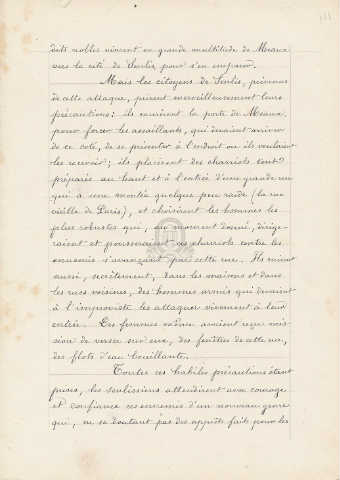 dits nobles vinrent en grande multitude de Meaux
vers la cité de Senlis pour s'en emparer.
Mais les citoyens de Senlis, prévenus
de cette attaque, prirent merveilleusement leurs
précautions: ils ouvrirent la porte de Meaux
pour forcer les assaillants, qui devaient arriver
de ce côté, de se présenter à l'endroit où ils voulaient
les recevoir; ils placèrent des charriots tout
préparés au haut et à l'entrée d'une grande rue
qui a une montée quelque peu raide (la rue
vieille de Paris), et choisirent les hommes les
plus robustes qui, au moment donné, dirige-
raient et pousseraient ces charriots contre les
ennemis s'avançant par cette rue. Ils mirent
aussi, secrètement, dans les maisons et dans
les rues voisines, des hommes armés qui devaient
à l'improviste les attaquer vivement à leur
entrée. Des femmes même avaient reçu mis-
sion de verser sur eux, des fenêtres de cette rue,
des flots d'eau bouillante.
Toutes ces habiles précautions étant
prises, les senlisiens attendirent avec courage
et confiance ces ennemis d'un nouveau genre
qui, ne se doutant pas des apprêts faits pour les